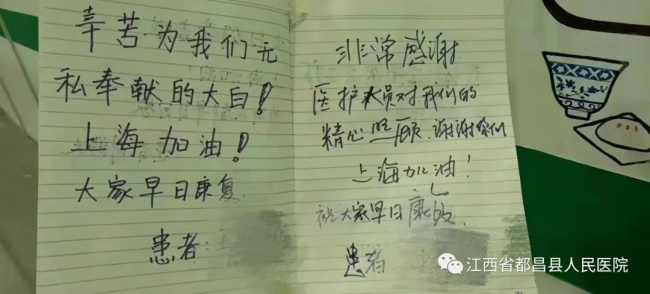 辛苦为我们无
私奉献的大白！
上海加油！
大家早日康复
患者：
非常感谢
医护人员对我们的
精心照顾 谢谢你们
上海加油！
祝大家早日康
患者
江西省都昌县人民医院